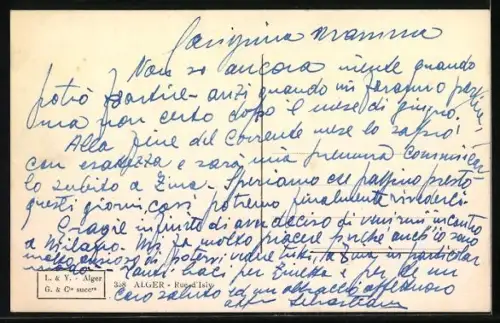 Carissima Mamma
Non so ancora niente quando
potrò partire - anzi quando mi faranno partire
ma non certo dopo il mese di giugno.
Alla fine del corrente mese lo saprò
con esattezza e sarà mia premura comunicar
lo subito a Zina. Speriamo che passino presto
questi giorni, così potremo finalmente rivederli
Grazie infinite di aver deciso di venirmi incontro
a Milano. Mi fa molto piacere perchè anch'io sono
molto ansioso di potervi vedere tutti, a Zina in particolar
Tanti baci per Zinetta e per te un
caro saluto ed un abbraccio affettuoso
Sebastiano
L. & Y. - Alger
G. & Cie succrs
ALGER - Rue d'Isly